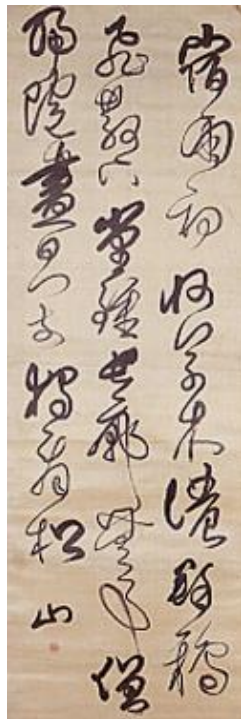 宿雨初收草木濃群鴉
飛散下堂鐘長廊無事僧
歸院盡日門前獨看松 山